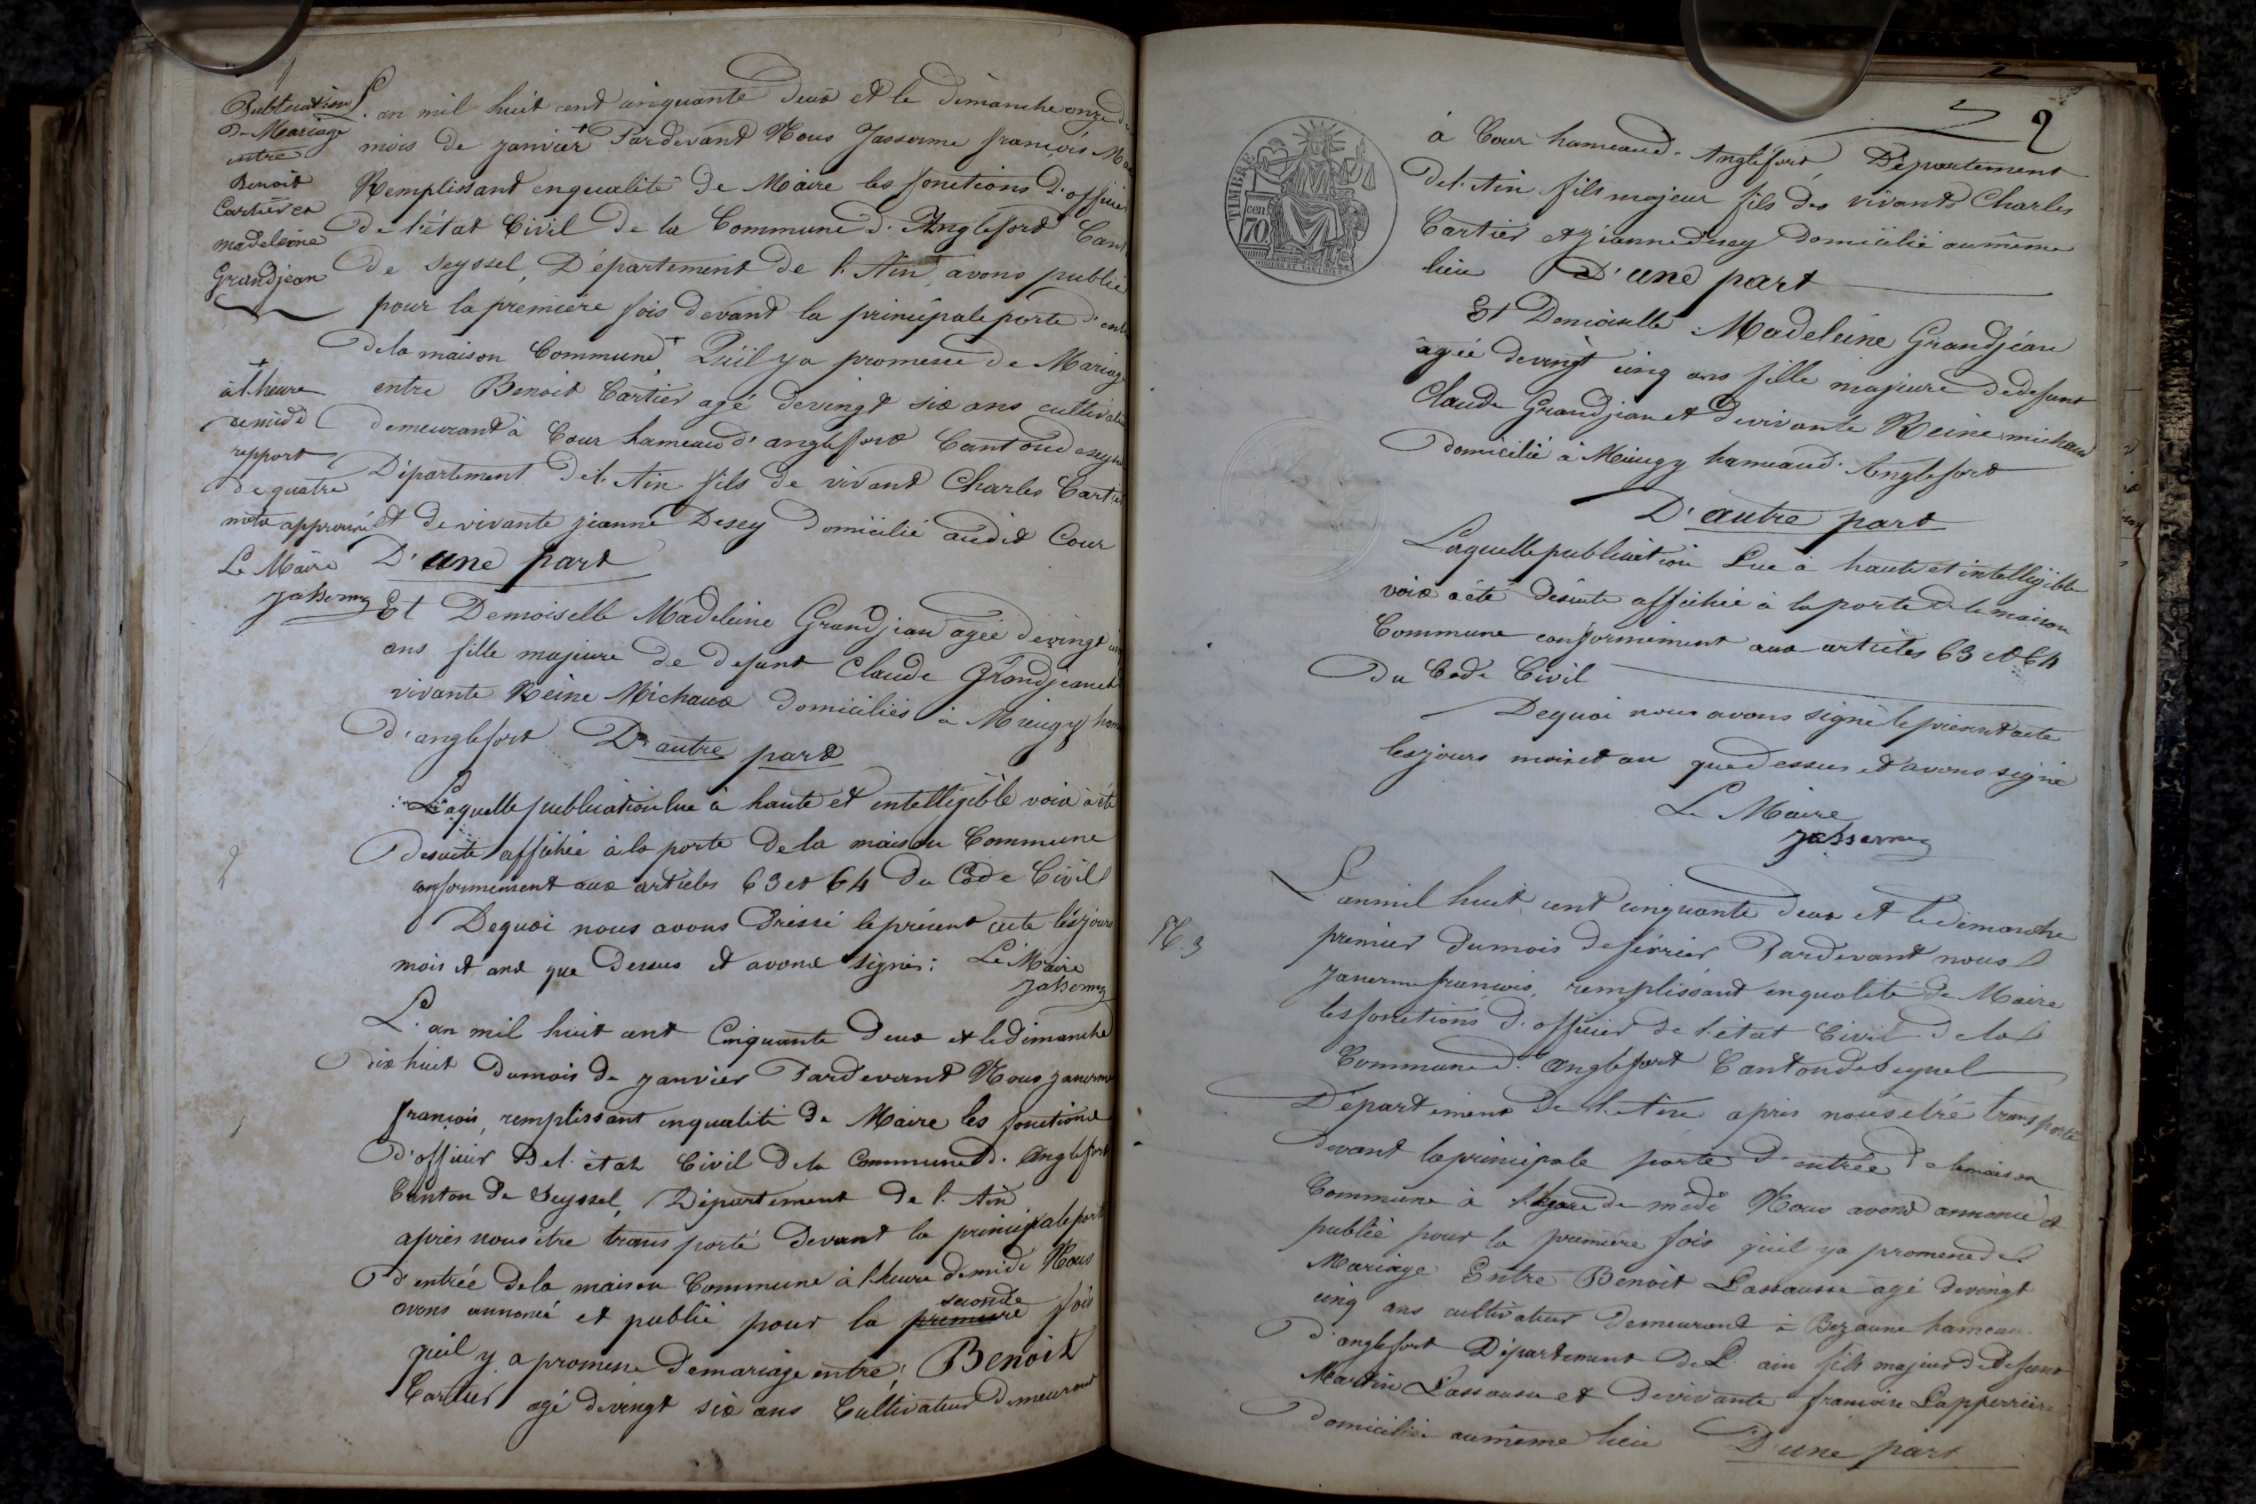 Publication
De Mariage
entre
Benoit
Cartier et
madeleine
Grandjean
+
à l'heure
de midi
repport
de quatre
mots approuvé
Le Maire
Jasserme
L'an mil huit cent cinquante deux et le dimanche onze du
mois de janvier + Pardevant Nous Jasserme françois
Remplissant enqualité de Maire les fonctions d'officier
De l'état Civil de la Commune d'Anglefort
de Seyssel, Département de l'Ain, avons publié
pour la première fois devant la principale porte
De la maison Commune + Qu'il y a promesse de Mariage
entre Benoit Cartier agé devingt six ans
demeurant à Cour hameau d'anglefort
Département del'Ain fils de vivant Charles Cartier
et de vivante jeanne Desey Domicilié audit Cour
D'une part
Et Demoiselle Madeleine Grandjean agée devingt
ans fille majeure de defunt Claude Grandjean et
vivante Reine Michaux domiciliés à Mieugy
d'anglefort D'autre part
Laquelle publication lue à haute et intelligible voix a été
desuite affichée à la porte De la maison Commune
conformément aux articles 63 et 64 Du Code Civil
Dequoi nous avons Dressé le présent acte les jours
mois et ans que Dessus et avons signés : Le Maire
Jasserme
L'an mil huit cent Cinquante deux et le dimanche
dix huit Dumois de janvier Pardevant Nous
françois, remplissant enqualité de Maire les fonctions
d'officier Del'état Civil Dela Commune d'Anglefort
Canton de Seyssel, Département de l'Ain
après nous être transporté devant la principale porte
D'entrée dela maison Commune à l'heure de midi Nous
seconde
avons annoncé et publié pour la premiere fois
qu'il y a promesse demariage entre ; Benoit
Cartier agé devingt six ans Cultivateur Demeurant
2
TIMBRE
cen.
70
à Cour hameau d'Anglefort, Département
Del'Ain fils majeur fils des vivants Charles
Cartier et jeanne Desey Domicilié aumême
lieu D'une part
Et Demoiselle Madeleine Grandjean
agée devingt cinq ans fille majeure de defunt
Claude Grandjean et devivante Reine michaud
domicilié à Mieugy hameau d'Anglefort
D'autre part
Laquelle publication Lue à haute et intelligible
voix a été desuite affichée à la porte de la maison
Commune conformément aux articles 63 et 64
Du Code Civil
Dequoi nous avons signé le présent acte
les jours mois et an que dessus et avons signé
Le Maire
Jasserme
N. 3
L'an mil huit cent cinquante deux et le dimanche
premier dumois de février Pardevant nous
françois, remplissant enqualité de Maire
les fonctions d'officier de l'état Civil de la
Commune d'Anglefort Canton de Seyssel
Département de l'Ain après nous être transporté
devant la principale porte d'entrée de la maison
Commune à l'heure de midi Nous avons annoncé et
publié pour la première fois qu'il y a promesse de
Mariage Entre Benoit Lassausse agé devingt
cinq ans cultivateur Demeurant à hameau
d'anglefort Département De L'ain fils majeur de Defunt
Martin Lassausse et devivante francoise
domicilié aumême lieu D'une part